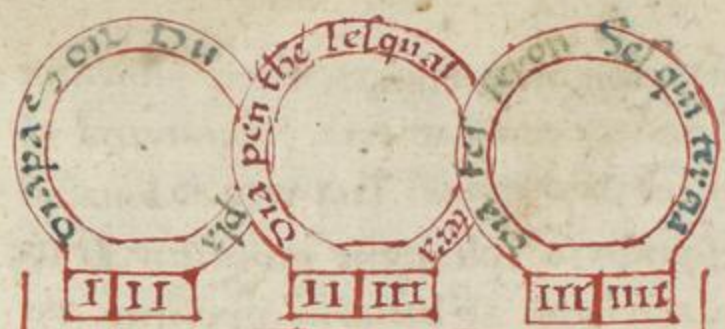 Diapason Du pla
Dia pen the sesqual tera
Dia tes seron Sesqui tertia
I II
II III
III IIII